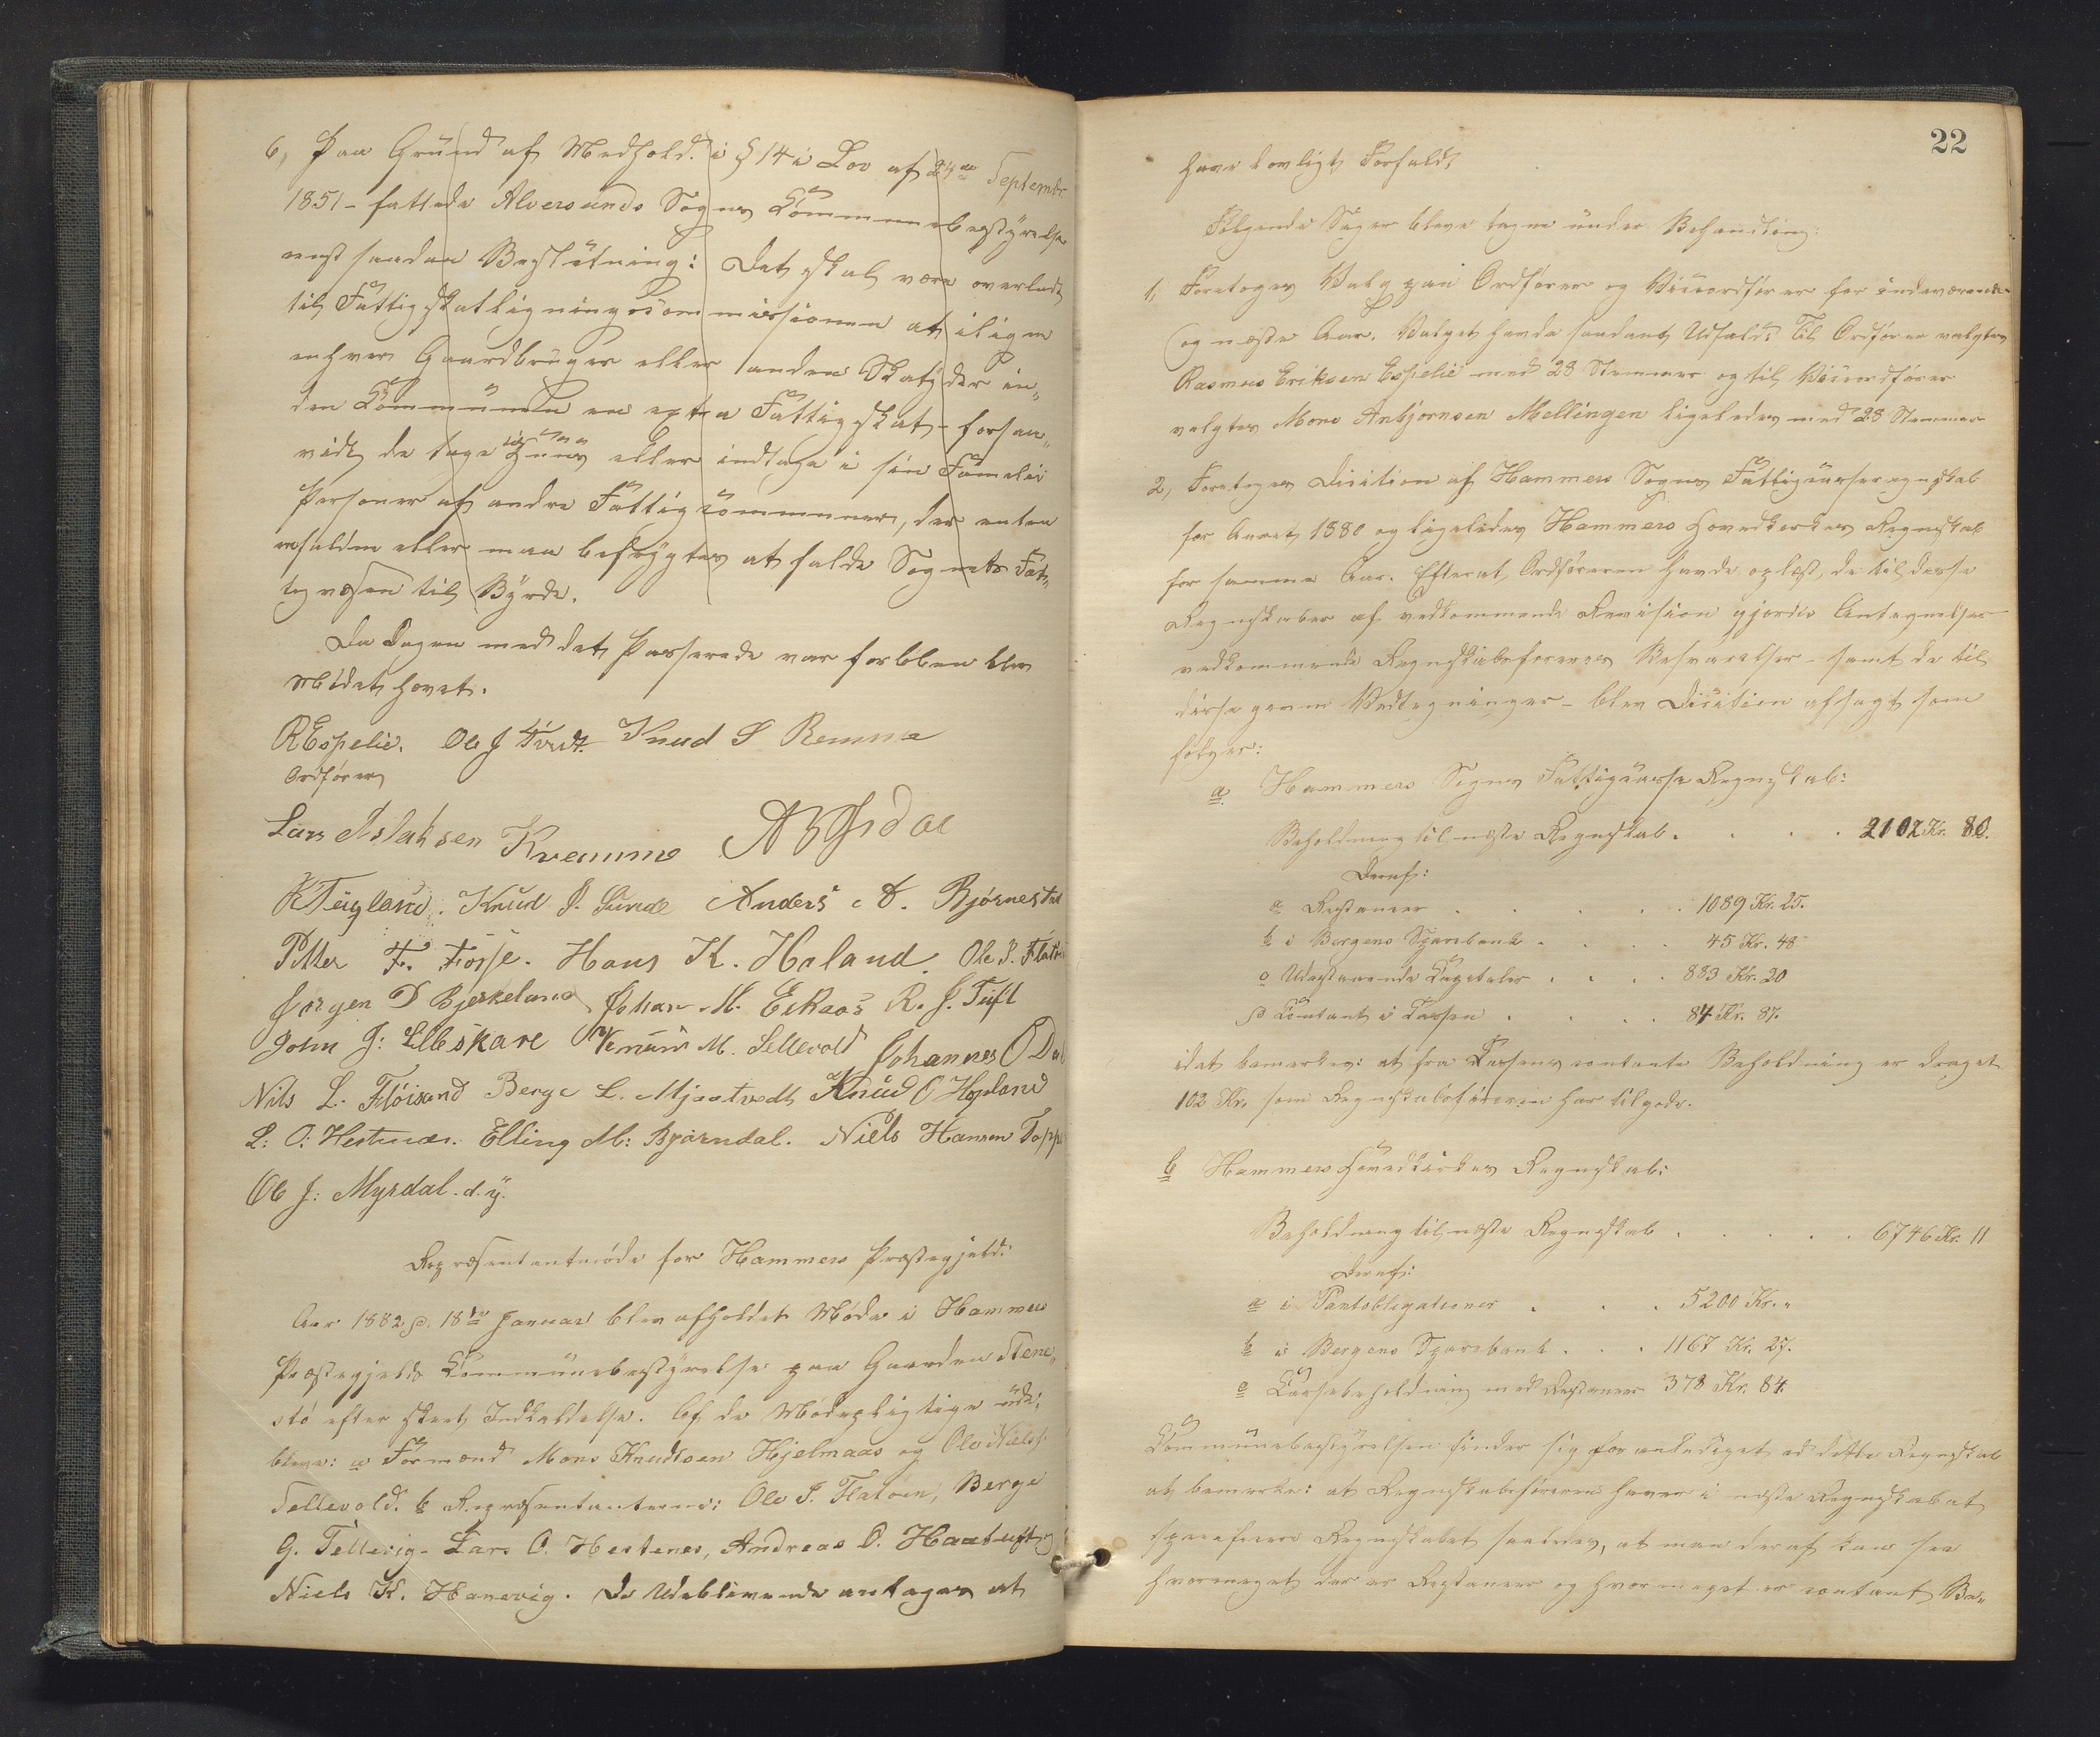 6, Paa Grund af Medhold i § 14 i Lov af 24de Septembr
1851 - fattede Alversunds Sogns Communebestyrelse
enst saadan Beslutning: Det skal være overladt
til Fattigskatligningscommissionen at iligne
enhver Gaardbruger eller anden Skatyder in„
den Communen en extra Fattigskat - forsaa„
vidt de tage i Huus eller indtage i sin Familie
Personer af andre Fattigcommuner, der enten
ere faldne eller maa befrygtes at falde Sognets Fat„
tigvæsen til Byrde.
Da Dagen med det Passerede var forløben blev
Mødet hævet.
R Espelie. Ole J Tvedt. Knud S Remme
Ordfører
Lars Aslaksen Kvamme
K Teigland. Knud J. Sunde Anders A. Bjørnestad
Petter F. Fosse. Hans K. Holand. Ole J. Flatøe
Jørgen D Bjerkeland Johan M. Eikaas R. J. Tuft
John J: Elleskare M. Sellevold Johannes O Dal
Nils L. Fløisand Berge L. Mjaatvedt Knud O Hopland
L: O: Hestnæs. Elling M: Bjørndal. Niels Hansen Toppe
Ole J: Myrdal. d. y.
Repræsentantmøde for Hammers Præstegjeld.
Aar 1882 d. 18de Januar blev afholdet Møde i Hammers
Præstegjelds Communebestyrelse paa Gaarden Stene„
stø efter skeet Indkaldelse. Af de Mødepligtige ude„
bleve: a Formænd Mons Knudtsen Hjelmaas og Ole Nielss.
Sellevold. b Repræsentanterne: Ole J. Flatøen, Berge
G. Tellevig - Lars O. Hestenes, Andreas O. Haatuft og
Niels K. Hanevig. De Udeblivende antages at
22
have lovligt Forfald.
Følgende Sager bleve tagne under Behandling:
1, Foretoges Valg paa Ordfører og Viceordfører for indeværende
og næste Aar. Valget havde saadant Udfald: Til Ordfører valgtes
Rasmus Eriksen Espelie med 28 Stemmer og til Viceordfører
valgtes Mons Anbjørnsen Mellingen ligeledes med 28 Stemmer
2, Foretoges Decition af Hammers Sogns Fattigcasseregnskab
for Aaret 1880 og ligeledes Hammers Hovedkirkes Regnskab
for samme Aar. Efterat Ordføreren havde oplæst, de til disse
Regnskaber af vedkommende Revision gjorte Antegnelser
vedkommende Regnskabsføreres Besvarelser - samt de til
disse givne Vedtegninger - blev Decition afsagt som
følger:
a Hammers Sogns Fattigcasse Regnskab:
Beholdning til næste Regnskab . . . . 2102 Kr. 80.
Deraf:
a Restancer . . . . . 1089 Kr. 25.
b i Bergens Sparebank . . . . 45 Kr. 48
c Udestaaende Capitaler . . . . 883 Kr. 20
d Contant i Cassen . . . . 84 Kr. 87.
idet bemærkes: at fra Cassens contante Beholdning er draget
102 Kr. som Regnskabsføreren har tilgode.
b Hammers Hovedkirkes Regnskab:
Beholdning til næste Regnskab . . . . . 6746 Kr. 11
Deraf:
a i Pantobligationer . . . 5200 Kr. „
b i Bergens Sparebank . . . 1167 Kr. 27.
c Cassebeholdning med Restancer 378 Kr. 84.
Communebestyrelsen finder sig foranlediget ad dette Regnskab
at bemærke: at Regnskabsføreren haver i næste Regnskab at
specificere Regnskabet saaledes, at man deraf kan see
hvormeget der er Restancer og hvormeget er contant Be„